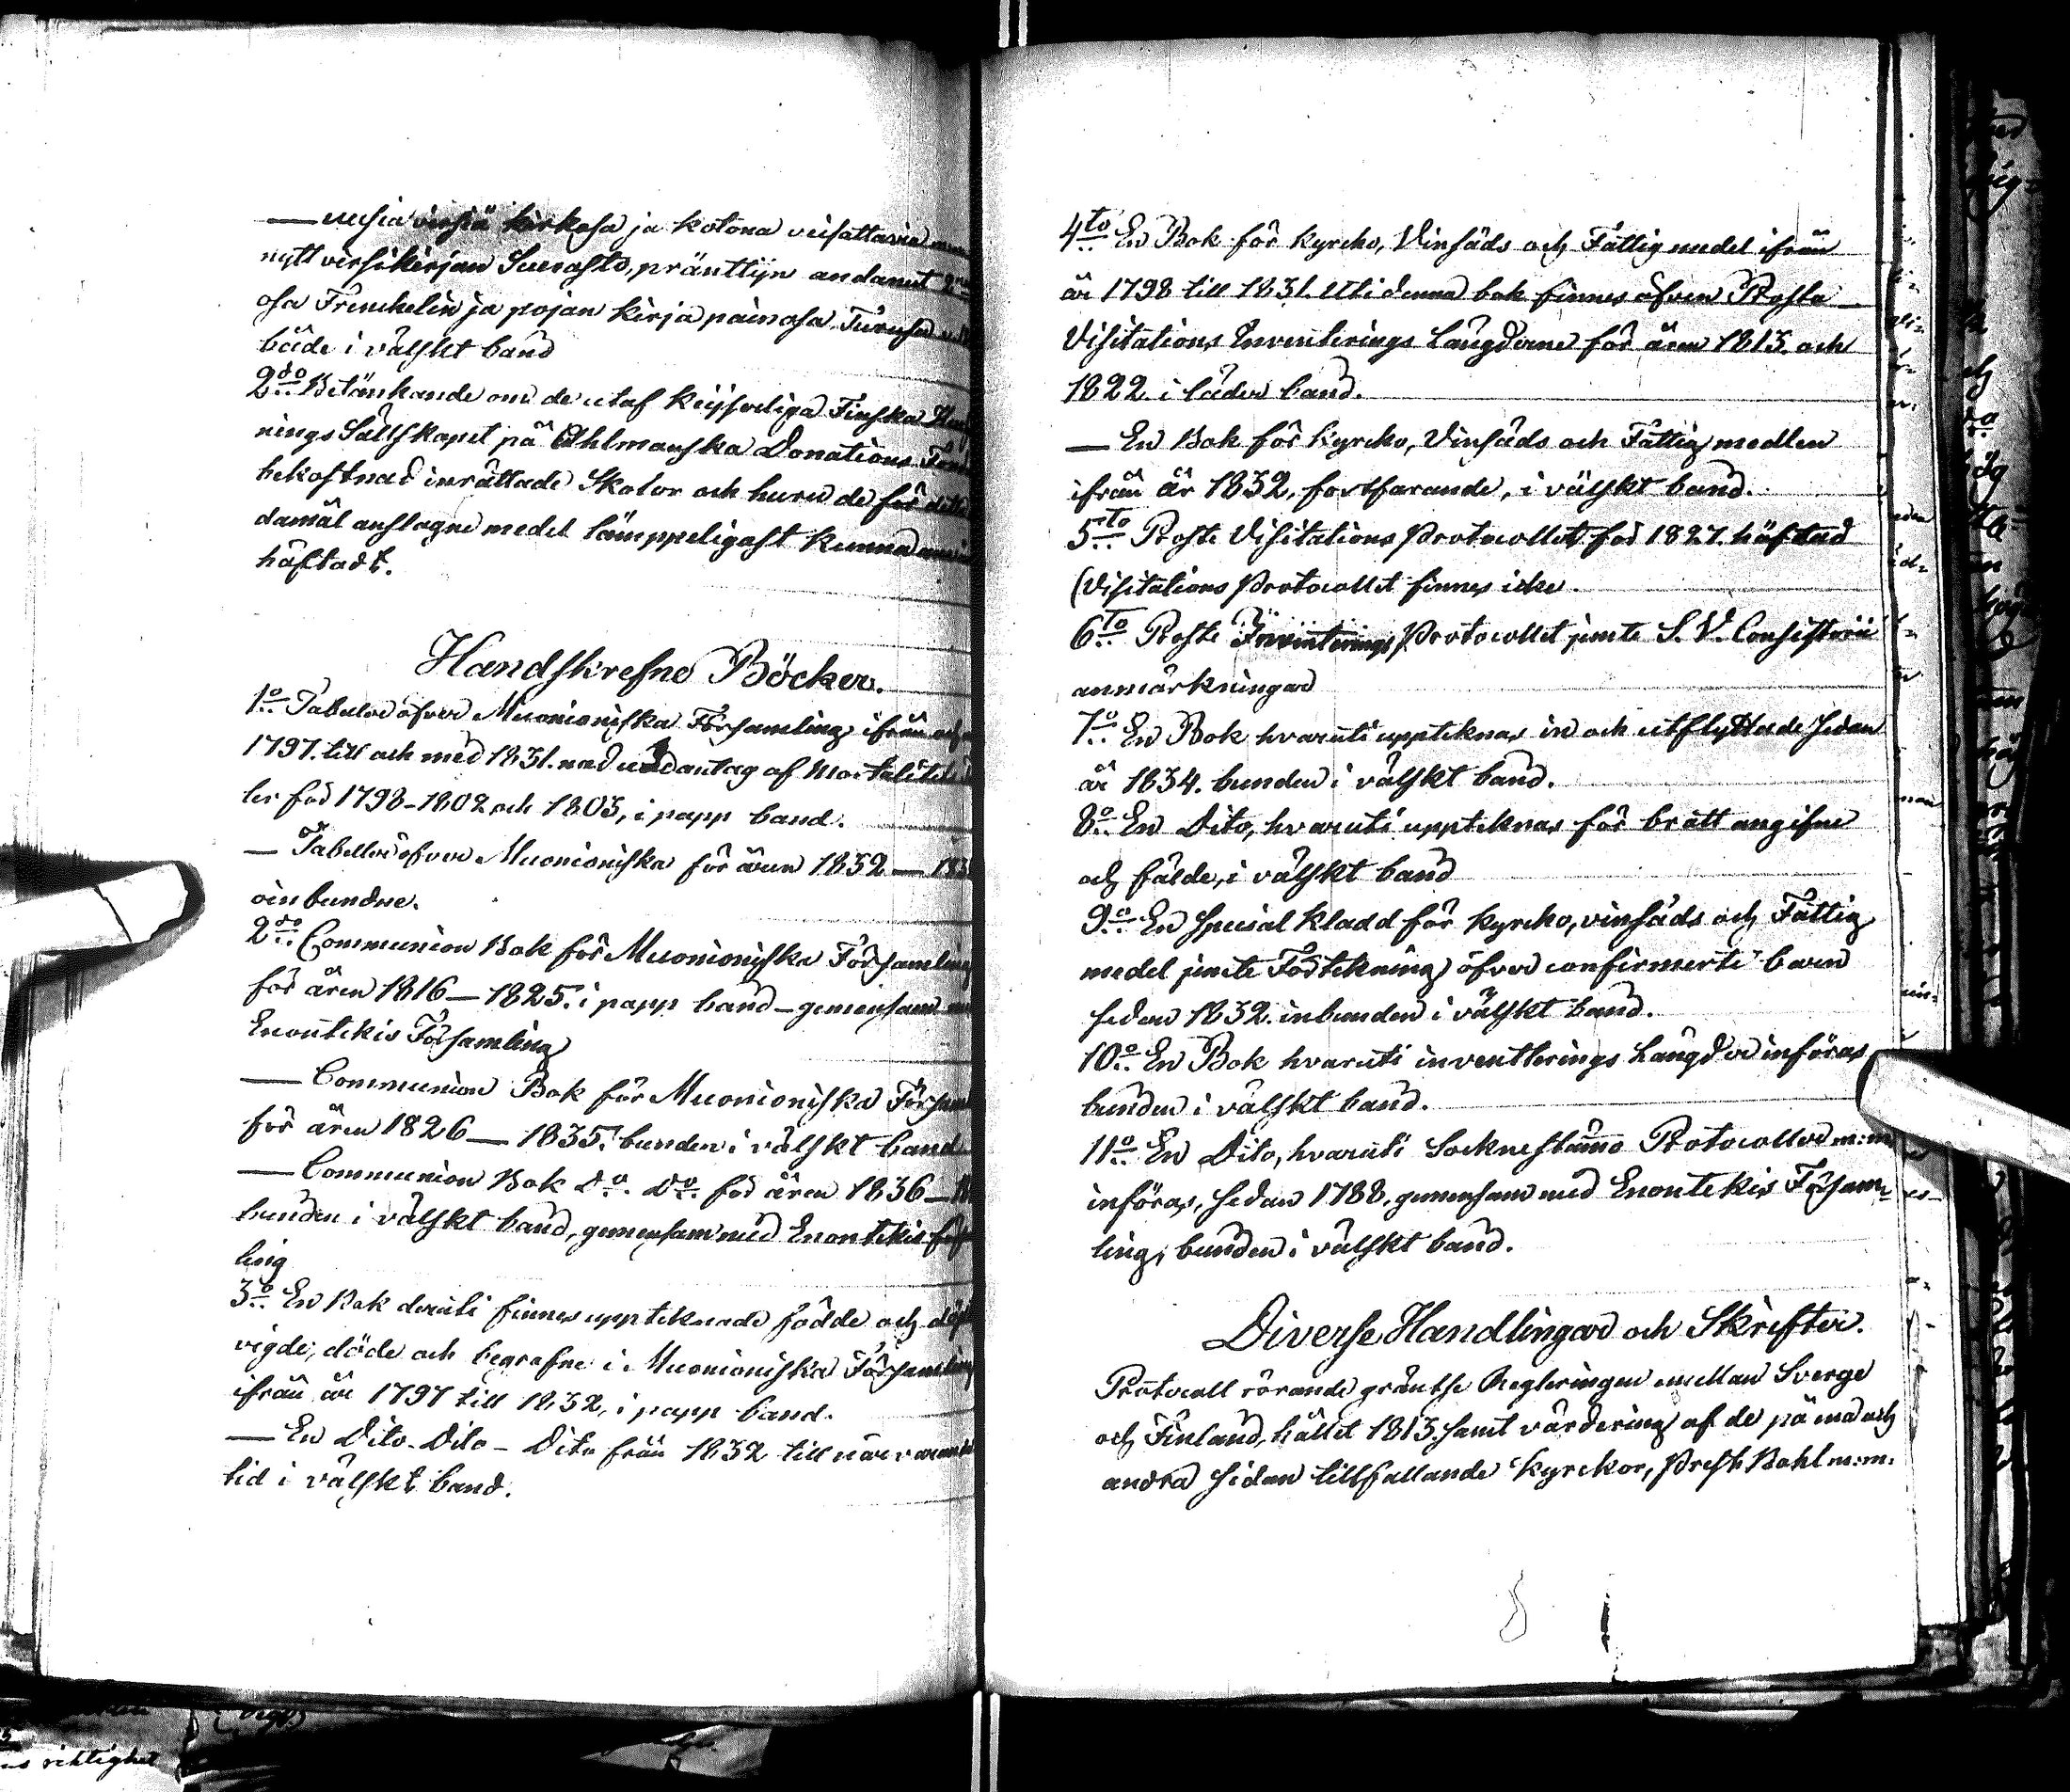 — uusia virsiä kirkosa ja kotona veisattavia
nytt virsikirjan Suuosto, pränttijn andanut 2
osa Frenckelin ja pojan kirja painosa Turusa
både i välskt band
2do Betänkande om de utaf Keijserliga Finska Hus
nings Sällskapet på Ahlmanska Donations Fond
bekostnad inrättade Skolor och huru de för detta
damål anslagne medel lämppeligast kunna
häftadt.
Handskrefne Böcker.
1o Tabeller öfver Muonioniska Församling ifrån och
1797. till och med 1831. med undantag af Mortalitets
ler för 1798-1802 och 1803, i papp band.
— Tabeller öfver Muonioniska för åren 1832 — 183
oinbundne.
2do Communion Bok för Muonioniska Församling
för åren 1816 — 1825. i papp band - gemensam
Enontekis Församling
— Communion Bok för Muonioniska Försam
för åren 1826 — 1835. bunden i välskt band
— Communion Bok do. do. för åren 1836 —
bunden i välskt band, gemensam med Enontekis för
ling
3o En Bok deruti finnes upptecknade födde och döpt
vigde, döde och begrafne i Muonioniska Församling
ifrån år 1797 till 1832, i papp band.
— En Dito - Dito - Dito från 1832 till närvarande
tid i välskt band.
4to En Bok för Kyrcko, Vinsäds och Fattig medel ifrån
år 1798 till 1831. Uti denna bok finnes äfven Prosta
Visitations Inventerings Längderne för åren 1813. och
1822 i läder band.
— En Bok för Kyrcko, Vinsäds och Fattig medlen
ifrån år 1832, fortfarande, i välskt band.
5to Proste Visitations Protocollet för 1827. häftad
(Visitations Protocollet finnes icke.
6to Proste Inventerings Protocollet jemte S. V. Consistorii
anmärkningar
7o En Bok hvaruti uppteknas in och utflyttade sedan
år 1834. bunden i välskt band.
8o En Dito, hvaruti uppteknas för brott angifne
och fälde, i välskt band
9o En special kladd för kyrcko, vinsäds och Fattig
medel jemte Förtekning öfver confirmerte barn
sedan 1832. inbunden i välskt band.
10o En Bok hvaruti inventterings Längder införas
bunden i välskt band.
11o En Dito, hvaruti Socknestämmo Protocoller m:m
införas, sedan 1788, gemensam med Enontekis Försam=
ling, bunden i välskt band.
Diverse Handlingar och Skrifter.
Protocoll rörande gräntse Regleringen emellan Sverge
och Finland, hållet 1813. samt värdering af de på ena och
andra sidan tillfallande Kyrckor, Prest Bohl m:m.
riktighet